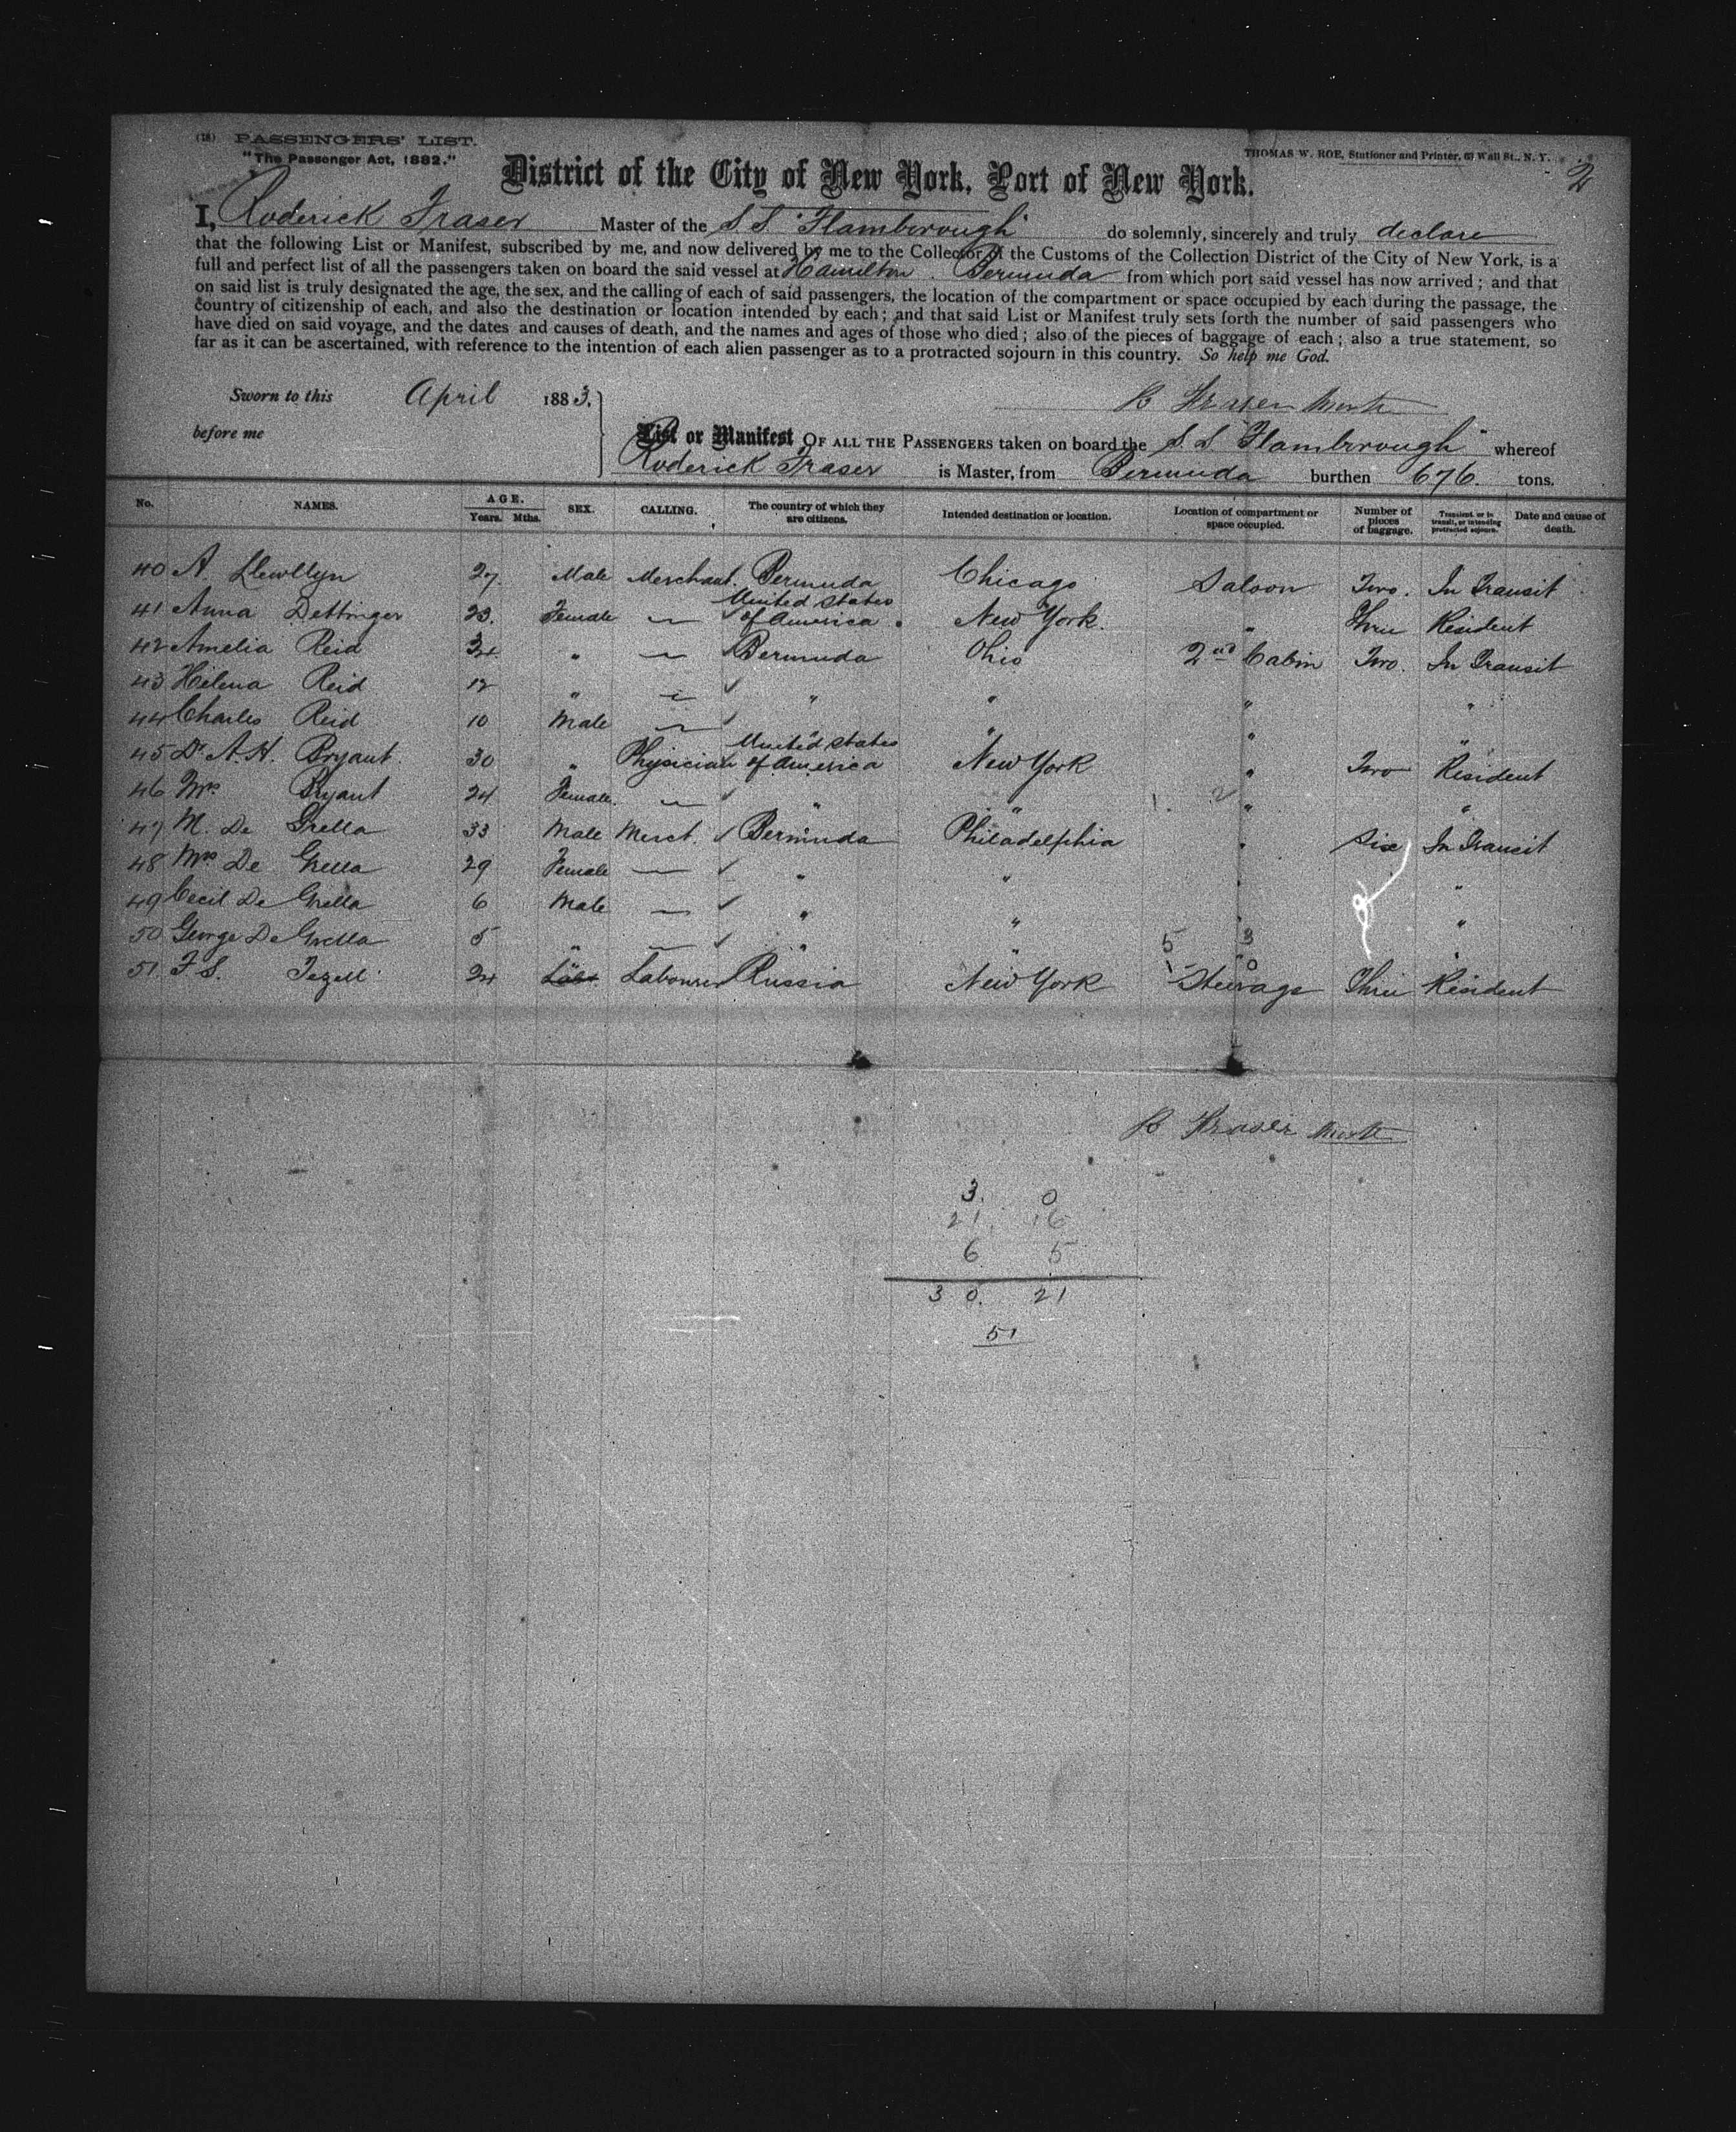 (18) PASSENGERS' LIST.
"The Passenger Act, 1882."
THOMAS W. ROE, Stationer and Printer, 69 Wall St., N. Y.
2
District of the City of New York, Port of New York.
I, Roderick Fraser Master of the S S "Flamborough" do solemnly, sincerely and truly declare
that the following List or Manifest, subscribed by me, and now delivered by me to the Collector of the Customs of the Collection District of the City of New York, is a
full and perfect list of all the passengers taken on board the said vessel at Hamilton. Bermuda from which port said vessel has now arrived; and that
on said list is truly designated the age, the sex, and the calling of each of said passengers, the location of the compartment or space occupied by each during the passage, the
country of citizenship of each, and also the destination or location intended by each; and that said List or Manifest truly sets forth the number of said passengers who
have died on said voyage, and the dates and causes of death, and the names and ages of those who died; also of the pieces of baggage of each; also a true statement, so
far as it can be ascertained, with reference to the intention of each alien passenger as to a protracted sojourn in this country. So help me God.
Sworn to this April 1883.
R Fraser
before me
List or Manifest OF ALL THE PASSENGERS taken on board the S. S "Flamborough" whereof
Roderick Fraser is Master, from Bermuda burthen 676. tons.
No. NAMES. AGE. Years. Mths. SEX. CALLING. The country of which they are citizens. Intended destination or location. Location of compartment or space occupied. Number of pieces of baggage. Transient or in transit, or intending protracted sojourn. Date and cause of death.
40 A. Llewllyn 27. Male Merchant. Bermuda Chicago Saloon Two. In Transit
41 Anna Dettinger 23. Female — United States of America. New York. " Three Resident
42 Amelia Reid 34 " — Bermuda Ohio 2nd Cabin Two. In Transit
43 Helena Reid 12 " — " " " "
44 Charles Reid 10 Male — " " " "
45 Dr A. H. Bryant. 30 " Physician United States of America New York " Two Resident
46 Mrs Bryant 24 Female. — " " " "
47 M. De Grella 33 Male Merct. Bermuda Philadelphia " Six In Transit
48 Mrs De Grella 29 Female — " " " "
49 Cecil De Grella 6 Male — " " " "
50 George De Grella 5 " — " " " "
5 3
1 0
51. F S. Tezell 24 Labourer Russia New York Steerage Three Resident
R Fraser
3. 0
21. 16
6 5
30. 21
51